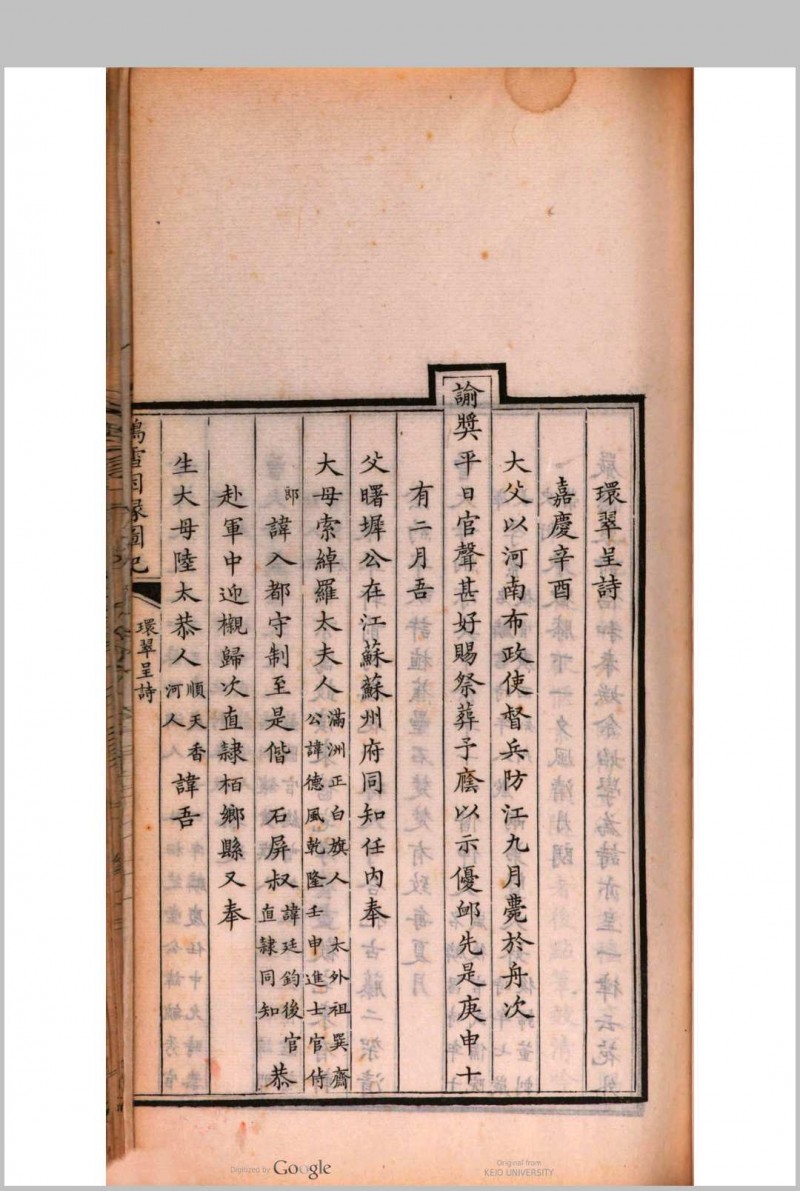 環翠呈詩
嘉慶辛酉
大父以河南布政使督兵防江九月薨於舟次
諭獎平日官聲甚好賜祭葬予廕以示優卹先是庚申十
有二月吾
父曙墀公在江蘇蘇州府同知任內奉
大母索綽羅太夫人滿洲正白旗人 太外祖巽齋公諱德風乾隆壬申進士官侍
郎諱入都守制至是偕 石屏叔諱廷鈞後官直隸同知恭
赴軍中迎櫬歸次直隸栢鄉縣又奉
生大母陸太恭人順天香河人諱吾
鴻雪因緣圖記
環翠呈詩
Digitized by Google
Original from
KEIO UNIVERSITY